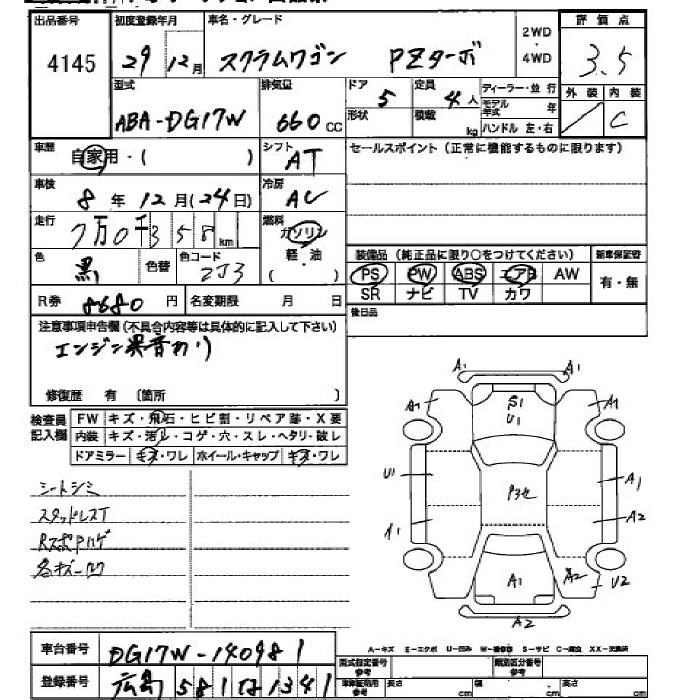 出品番号 初度登録年月 車名・グレード 2WD・4WD 評価点
4145 29 12月 スクラムワゴン PZターボ 3.5
型式 排気量 ドア 定員 ディーラー・並行 外装 内装
ABA-DG17W 660cc 5 4人 モデル年式 年 C
形状 積載 kg ハンドル 左・右
車歴 自家用・( ) シフト AT セールスポイント(正常に機能するものに限ります)
車検 8年12月(24日) 冷房 AC
走行 7万0千358km 燃料 ガソリン
色 黒 色替 色コード ZJ3 軽・油
( )
装備品(純正品に限り○をつけてください) 新車保証書
PS PW ABS エアB AW 有・無
SR ナビ TV カワ
R券 8680円 名変期限 月 日 後日品
注意事項申告欄(不具合内容等は具体的に記入して下さい)
エンジン異音あり
修復歴 有 〔箇所 〕
検査員記入欄 FW キズ・飛石・ヒビ割・リペア跡・X要
内装 キズ・汚レ・コゲ・穴・スレ・ヘタリ・破レ
ドアミラー キズ・ワレ ホイール・キャップ キズ・ワレ
シートシミ
スタッドレスT
各キズ凹
A1 A1
A1 S1 A1
U1
U1 A1
A1 A2
A1 A2 U2
A2
A-キズ E-エクボ U-凹み W-補修跡 S-サビ C-腐食 XX-交換済
車台番号 DG17W-140981
型式指定番号 類別区分番号
登録番号 広島 581 1341
長さ cm 幅 cm 高さ cm